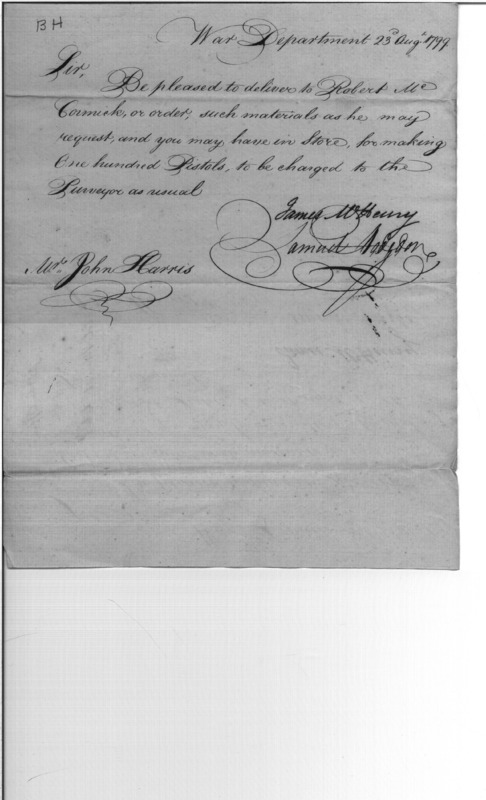 BH
War Department 23d Augt 1799
Sir,
Be pleased to deliver to Robert Mc
Cormick, or order, such materials as he may
request, and you may have in Store, for making
One hundred Pistols, to be charged to the
Surveyor as usual
James McHenry
Samuel Hodgdon
Mr. John Harris